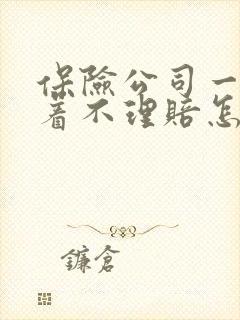 保險公司一
着不理賠怎
鐮倉